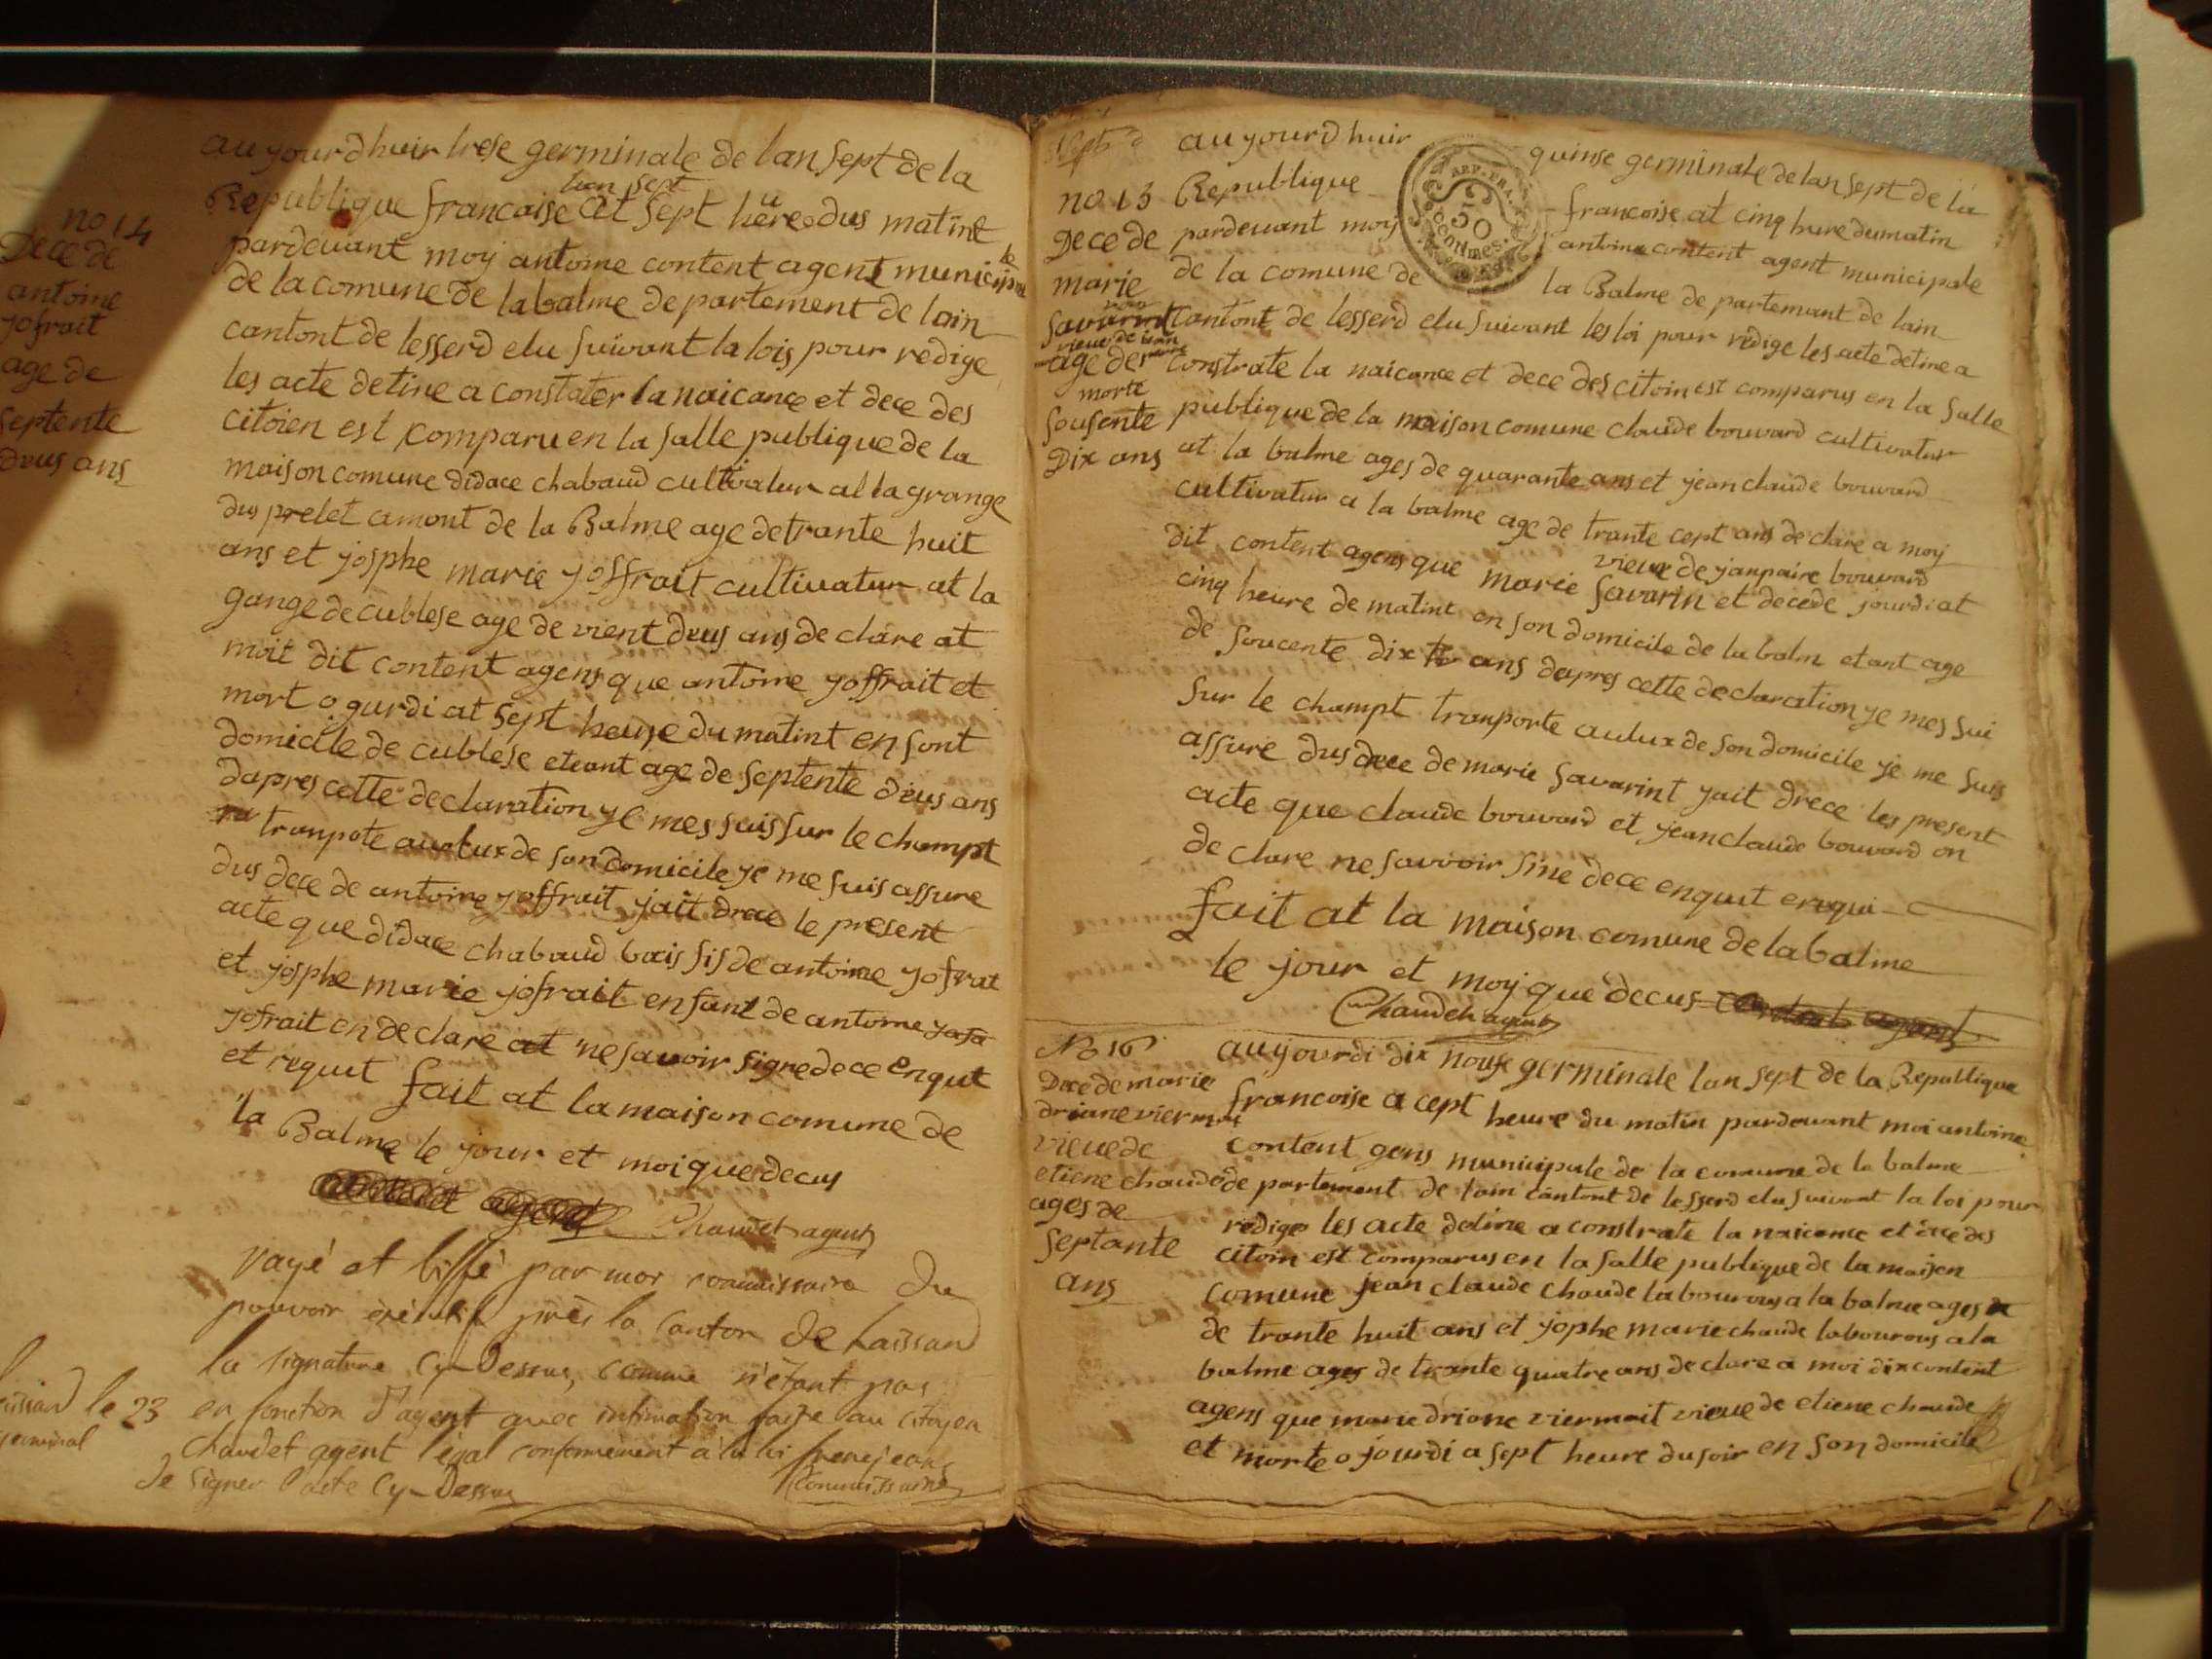 no 14
Dece de
antoine
yofrait
age de
septente
deus ans
au yourdhuir trese germinale de lan sept de la
lan sept
Republique francaise at sept heure dus matint
pardevant moy antoine content agent municipale
de la comune de la balme de partement de lain
cantont de lesserd elu suivant la lois pour redige
les acte detine a constater la naicance et dece des
citoien est comparu en la salle publique de la
maison comune didace chabaud cultivatur al la grange
dus prelet amont de la Balme age de trante huit
ans et yosphe marie yoffrait cultivatur at la
gange de cublese age de vient deus ans de clare at
moit dit content agens que antoine yoffrait et
mort o gurdi at sept heure du matint en sont
domicile de cublese eteant age de septente deus ans
dapres cette declaration ye mes suis sur le champt
tranpote au lux de son domicile ye me suis assure
dus dece de antoine yoffrait jait drece le present
acte que didace chabaud bais fis de antoine yofrat
et yosphe marie yofrait enfant de antoine
yofrait en declare at ne savoir signe dece enqut
et requt
fait at la maison comune de
la Balme le jour et moi que decus
Chaudet agent
rayé et biffé par moi commissaire du
pouvoir exécutif près le Canton de Laissard
la signature Cy-Dessus, comme n'étant pas
en fonction d'agent avec intimation faite au Citoyen
Chaudet agent légal conformément à la loi
de signer l'acte Cy-Dessus
le 23
germinal
Commissaire
no 15
Dece de
marie
savarint
age de
morte
sousente
Dix ans
au yourdhuir quinse germinale de lan sept de la
REP. FRA.
50
CENTIMES
Republique francoise at cinq hure du matin
pardevant moy antoine content agent municipale
de la comune de la Balme de partemant de lain
cantont de lesserd elu suivant les loi pour redige les acte detine a
constrate la naicance et dece des citoin est comparus en la salle
publique de la maison comune claude bouvard cultivatur
at la balme ages de quarante ans et jean claude bouvard
cultivatur a la balme age de trante cept ans de clare a moy
vieve de janpaire bouvard
dit content agens que marie Savarin et decede jourdi at
cinq heure de matint en son domicile de la balm etant age
de soucente dix ans dapres cette declaration ye mes sui
sur le champt tranporte au lux de son domicile ye me suis
assure dus dece de marie Savarint yait drece les present
acte que claude bouvard et jean claude bouvard on
de clare ne savvoir sine dece enqut erequi
fait at la maison comune de la balme
le jour et moy que decus
Chaudet agent
No 16
Dece de marie
driane viermoit
vieve de
etiene chaude
ages de
septante
ans
auyourdi dix nouf germinale lan sept de la Republique
francoise a cept heure du matin pardevant moi antoine
content gens municipale de la comune de la balme
de partement de lain cantont de lesserd elu suivant la loi pour
redige les acte detine a constrate la naicence et dece des
citoin est comparus en la salle publique de la maison
comune jean claude chaude labourous a la balme ages
de trante huit ans et yophe marie chaude labourous a la
balme ages de trante quatre ans declare a moi dix content
agens que marie driane viermoit vieve de etiene chaude
et morte o jourdi a sept heure du soir en son domicile